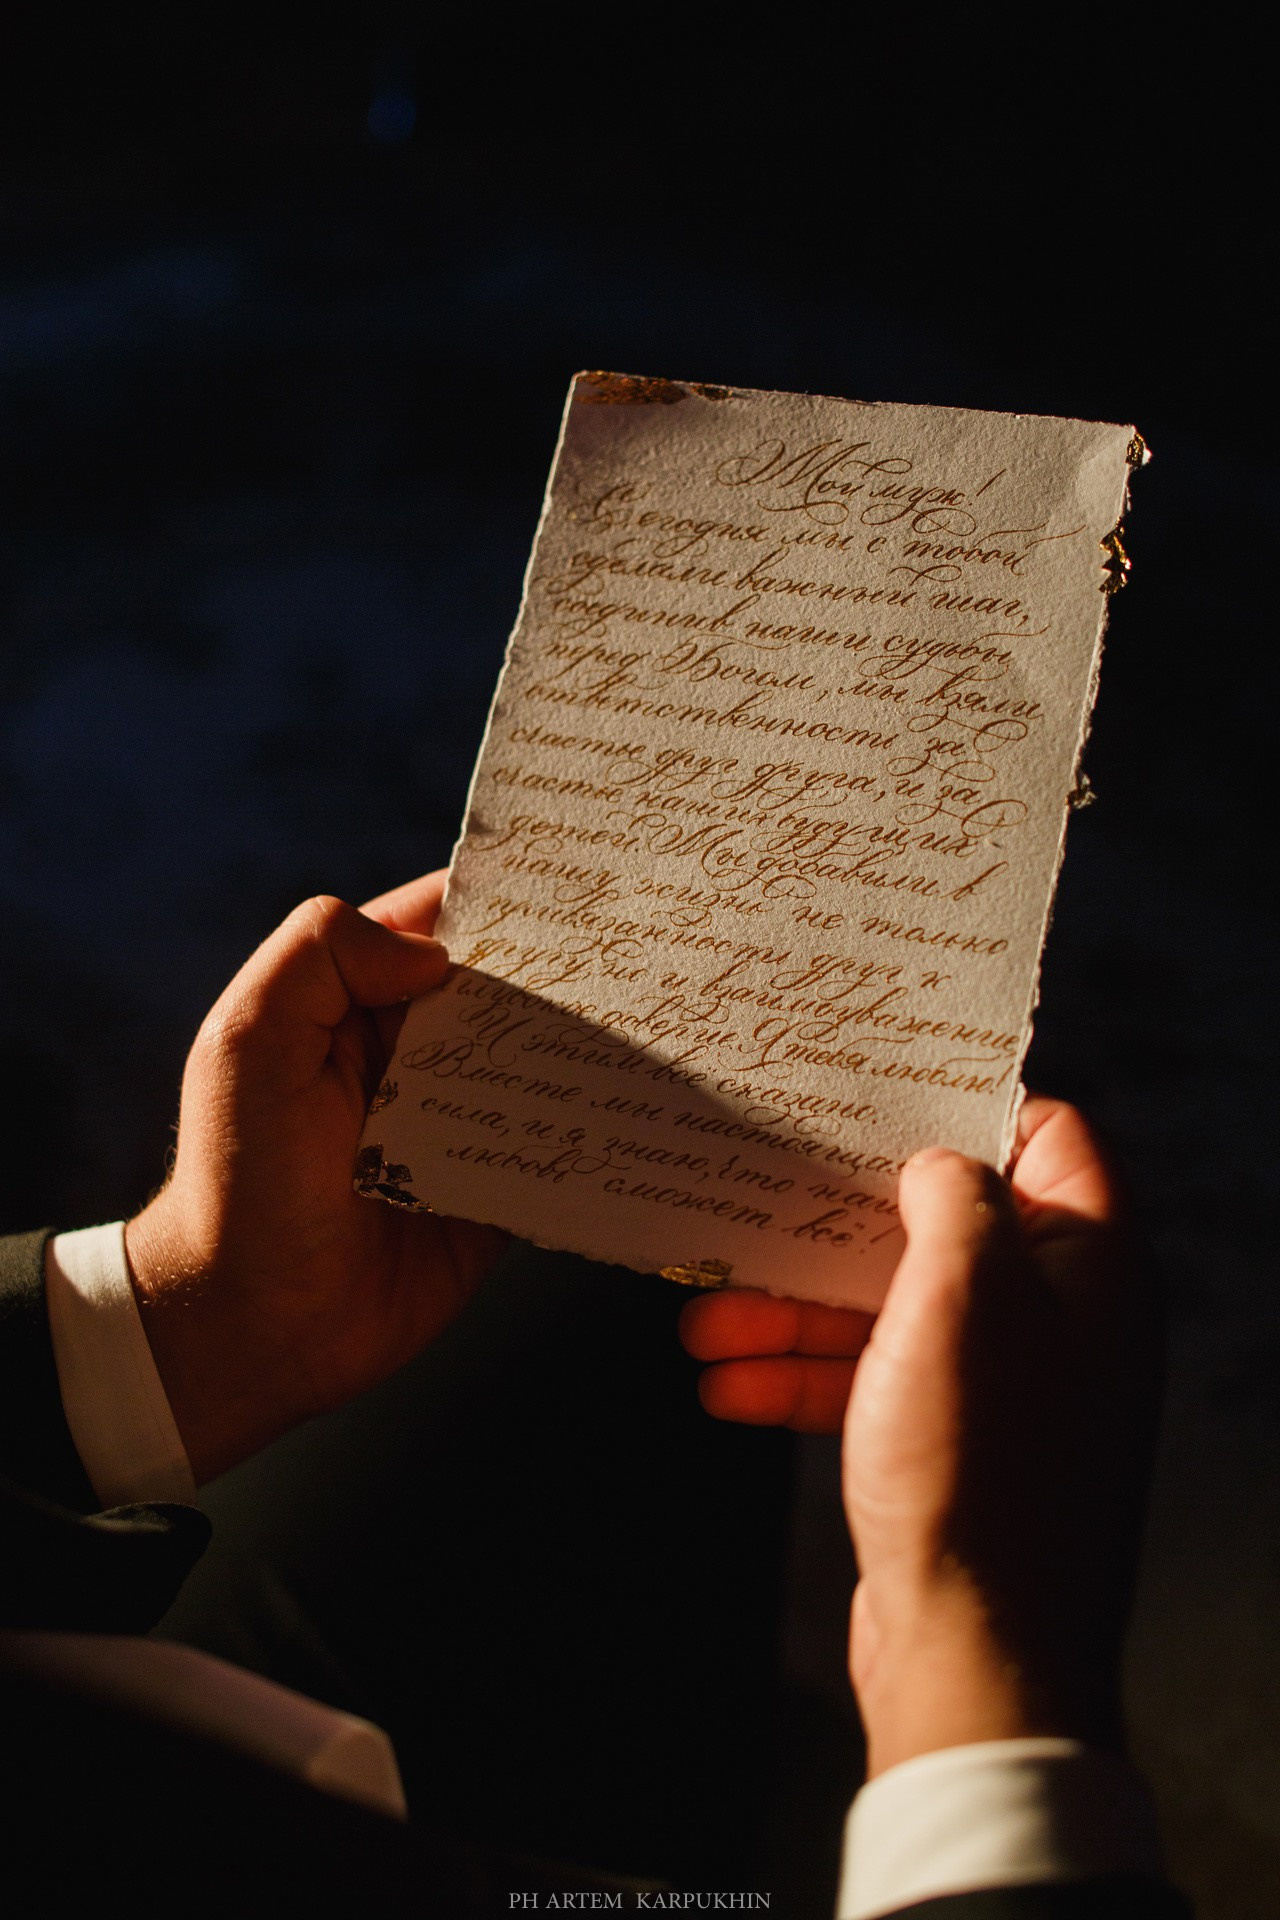 Мой муж!
Сегодня мы с тобой
сделали важный шаг,
соединив наши судьбы
перед Богом, мы взяли
ответственность за
счастье друг друга, и за
счастье наших будущих
детей. Мы добавили в
нашу жизнь не только
привязанность друг к
другу, но и взаимоуважение,
глубокое доверие. Я тебя люблю!
И этим всё сказано.
Вместе мы настоящая
сила, и я знаю, что наша
любовь сможет всё!
PH ARTEM KARPUKHIN